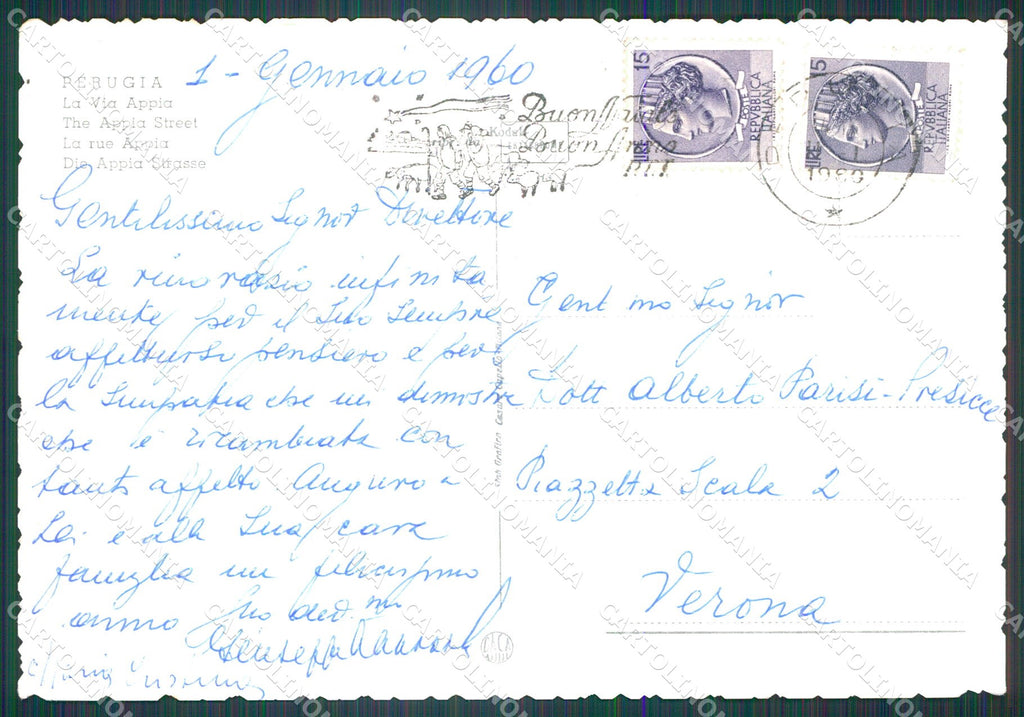 PERUGIA
La Via Appia
The Appia Street
La rue Appia
Die Appia Strasse
1 - Gennaio 1960
Buon
Buon
P.T.T.
LIRE 15
POSTE
REPVBBLICA
ITALIANA
LIRE 15
REPVBBLICA
ITALIANA
1960
Gentilissimo Signor Direttore
La ringrazio infinita
mente per il Suo sempre
affettuoso pensiero e per
la simpatia che mi dimostra
che è ricambiata con
tanto affetto Auguro a
Lei e alla Sua cara
famiglia un felicissimo
anno Suo dev mo
Giuseppe
Maria
Gent mo Signor
Dott Alberto Parisi-Presicce
Piazzetta Scala 2
Verona
CARTOLINOMANIA